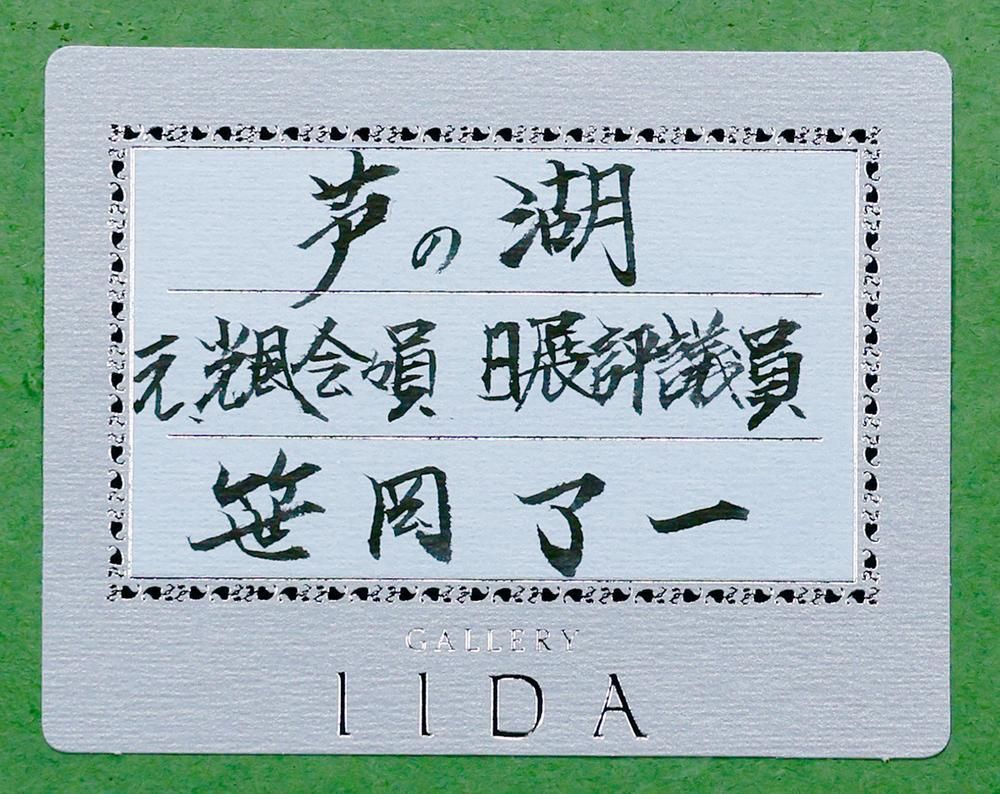 芦の湖
元光風会員 日展評議員
笹岡了一
GALLERY
IIDA